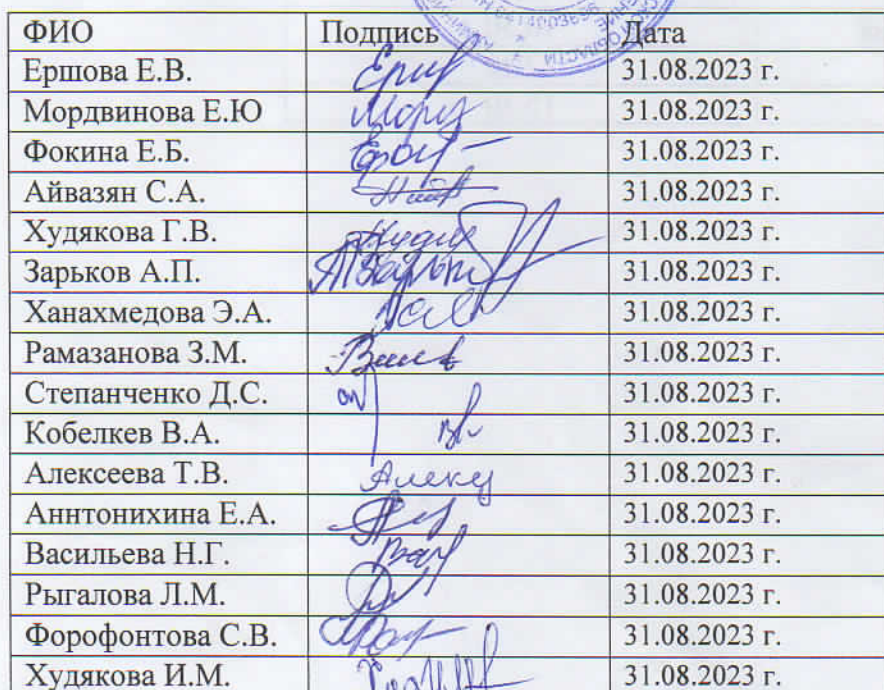 ФИО Подпись Дата
Ершова Е.В. 31.08.2023 г.
Мордвинова Е.Ю 31.08.2023 г.
Фокина Е.Б. 31.08.2023 г.
Айвазян С.А. 31.08.2023 г.
Худякова Г.В. 31.08.2023 г.
Зарьков А.П. 31.08.2023 г.
Ханахмедова Э.А. 31.08.2023 г.
Рамазанова З.М. 31.08.2023 г.
Степанченко Д.С. 31.08.2023 г.
Кобелкев В.А. 31.08.2023 г.
Алексеева Т.В. 31.08.2023 г.
Аннтонихина Е.А. 31.08.2023 г.
Васильева Н.Г. 31.08.2023 г.
Рыгалова Л.М. 31.08.2023 г.
Форофонтова С.В. 31.08.2023 г.
Худякова И.М. 31.08.2023 г.